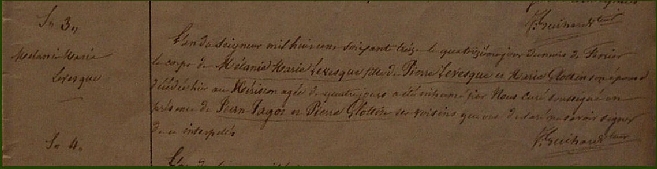 Sn 3.
Mélanie Marie
Levesque
P. Guihaud
L'an du Seigneur mil huit cent soixante treize le quatrième jour du mois de Février
le corps de Mélanie Marie Levesque fille de Pierre Levesque et Marie Glottin son épouse
décédée hier au agée de quatre jours a été inhumé par Nous Curé soussigné en
présence de Jean Fagot et Pierre Glottin ses voisins qui ont déclaré ne savoir signer
de ce interpelés
P. Guihaud
Sn 4.
L'an du